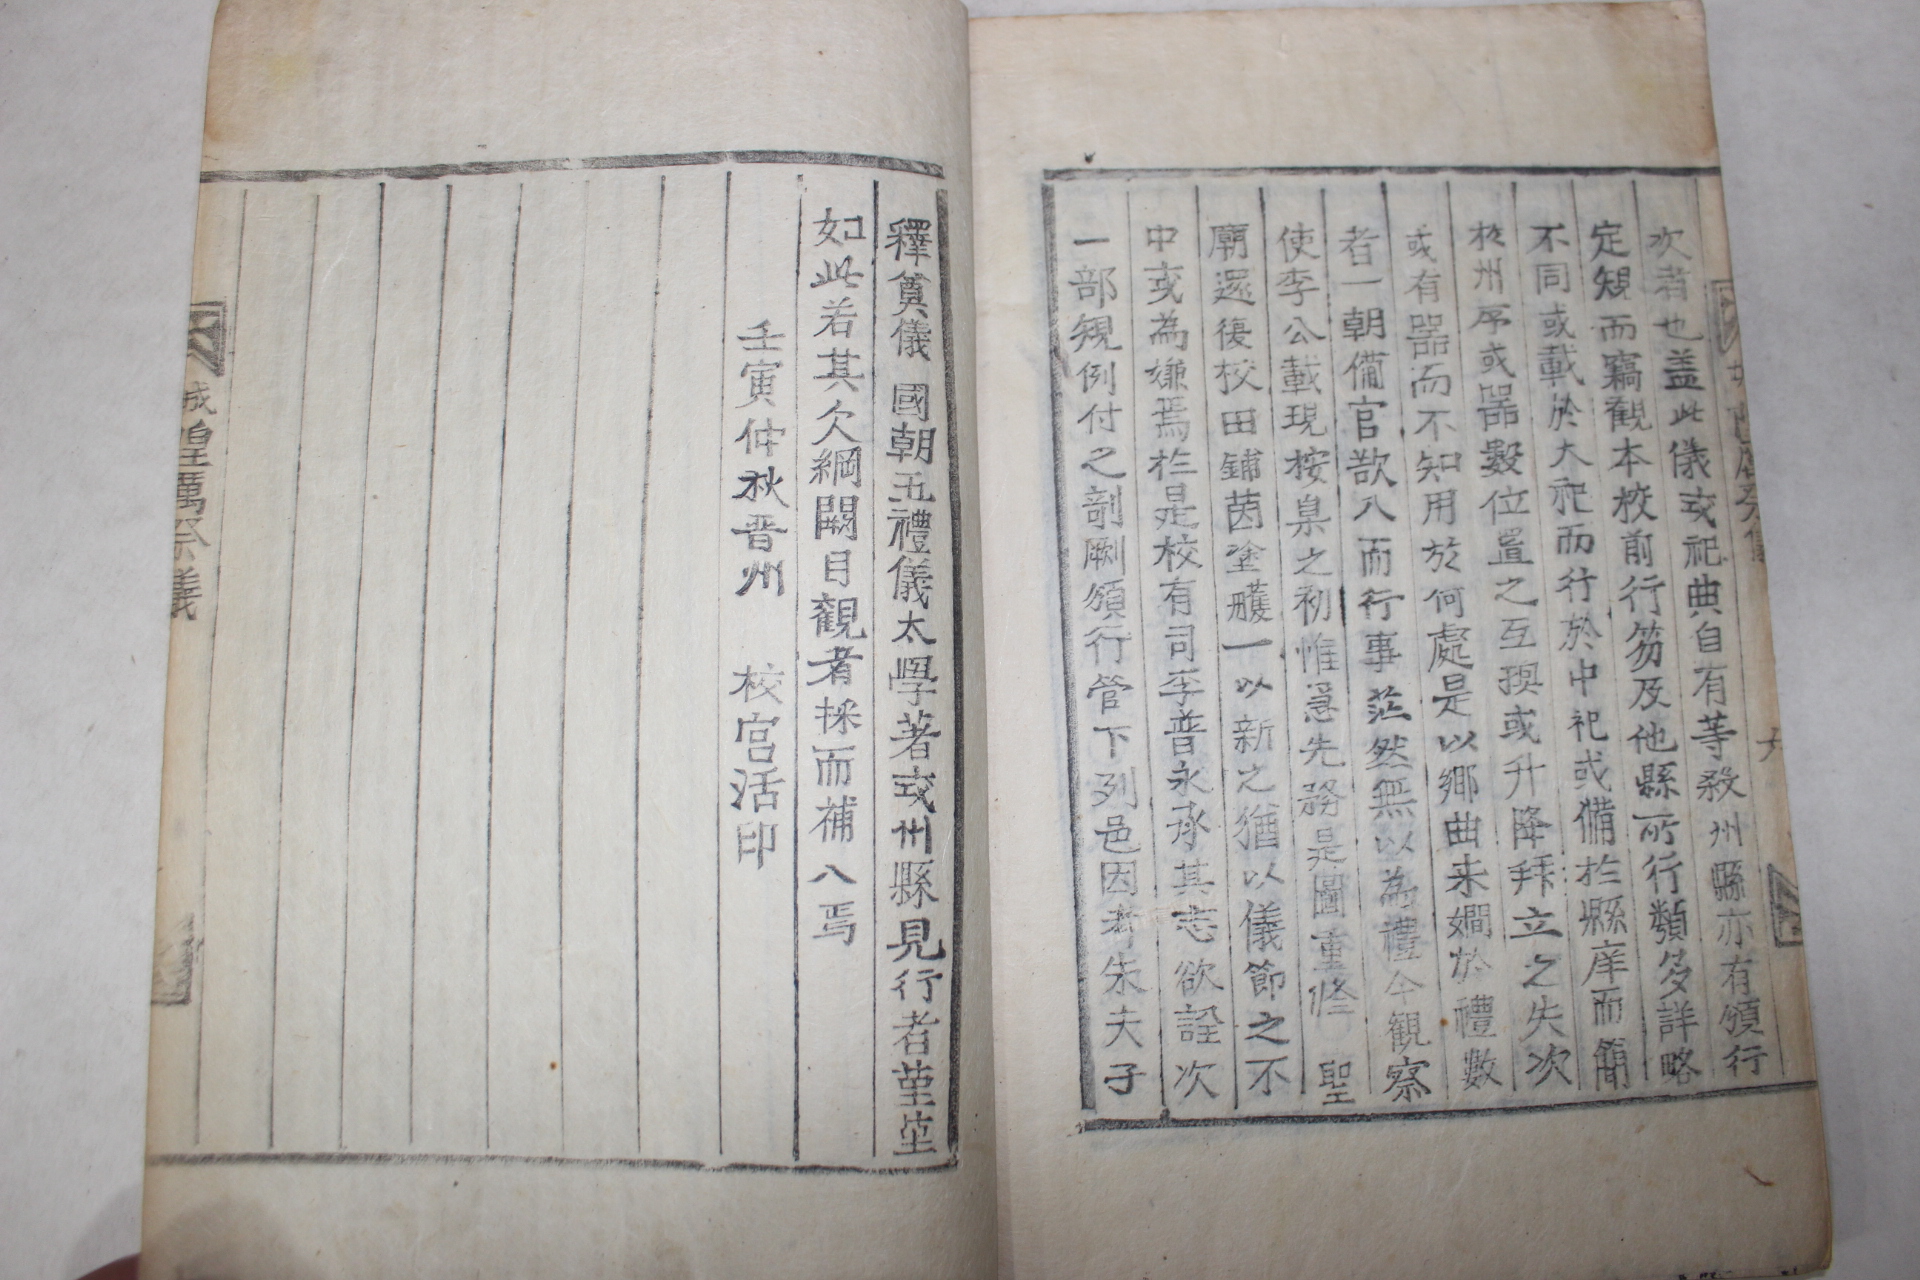 次者也盖此儀或祀典自有等殺州縣亦有頒行
定規而竊觀本校前行笏及他縣所行類多詳略
不同或載於大祀而行於中祀或備於縣庠而簡
於州序或器數位置之互換或升降拜立之失次
或有器而不知用於何處是以鄉曲未嫺於禮數
者一朝備官歆八而行事茫然無以為禮今觀察
使李公載現按臬之初惟急先務是圖重修 聖
廟還復校田鋪茵塗雘一以新之猶以儀節之不
中或為嫌焉於是校有司李普永承其志欲詮次
一部規例付之剞劂頒行管下列邑因者朱夫子
釋奠儀 國朝五禮儀太學著或州縣見行者堇堇
如此若其欠綱闕目觀者採而補八焉
壬寅仲秋晋州 校宮活印
城隍厲祭儀